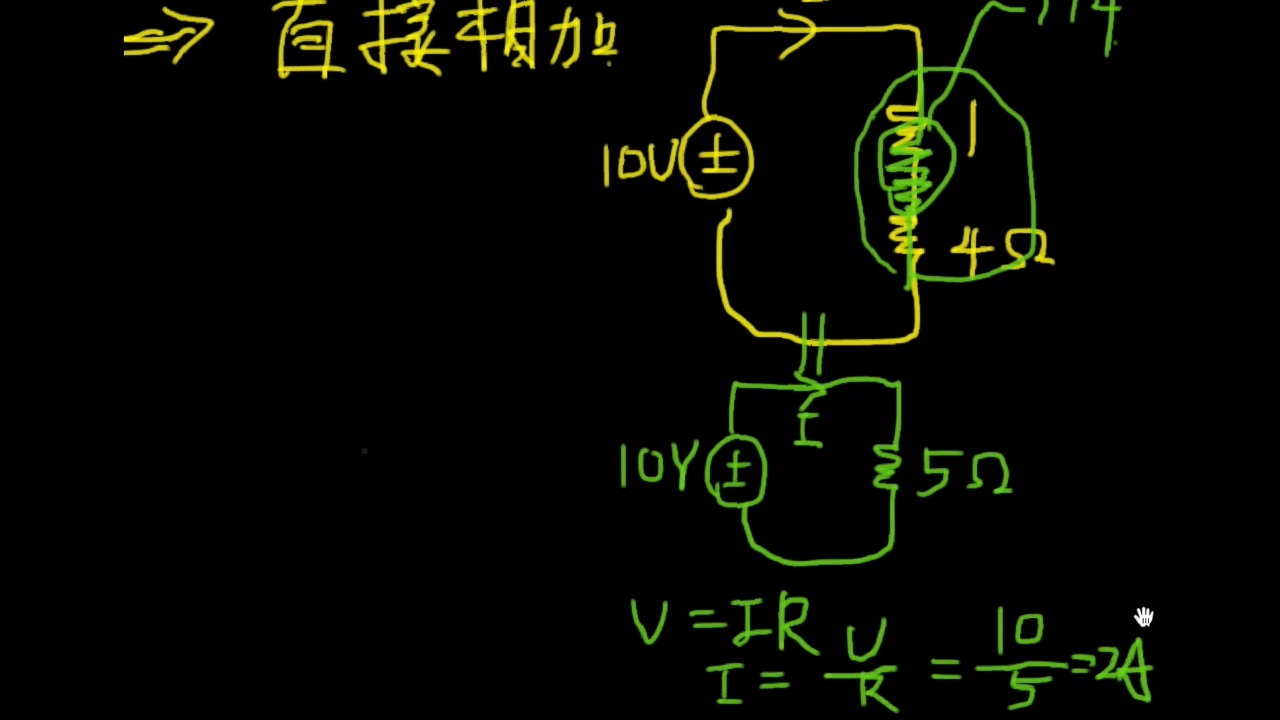 ⇒ 直接相加
1+4
10V
1
4Ω
I
10V
5Ω
V = IR
I = V/R = 10/5 = 2A